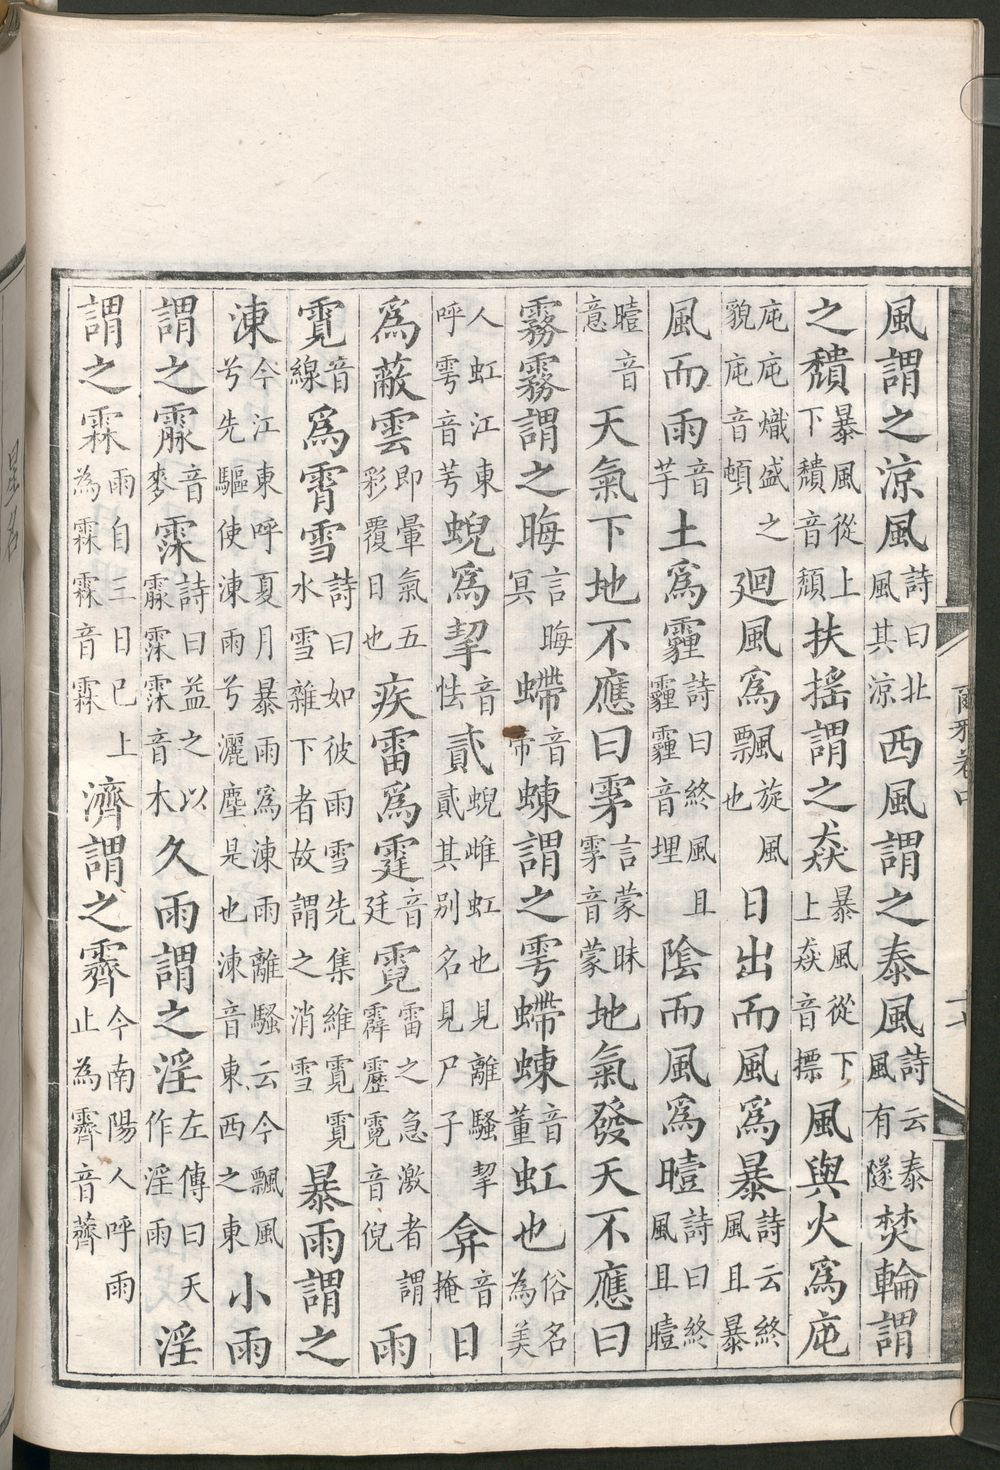 風謂之涼風詩曰北風其涼西風謂之泰風詩云泰風有隧焚輪謂
之穨暴風從上下穨音頹扶搖謂之猋暴風從下上猋音摽風與火為庉
庉庉熾盛之貌庉音頓廻風為飄旋風也日出而風為暴詩云終風且暴
風而雨音芋土為霾詩曰終風且霾霾音埋陰而風為曀詩曰終風且曀
曀音意天氣下地不應曰雺言蒙昧雺音蒙地氣發天不應曰
霧霧謂之晦言晦冥螮音帝蝀謂之雩螮蝀音董虹也俗名為美
人虹江東呼雩音芌蜺為挈音怯貳蜺雌虹也見離騷挈貳其別名見尸子弇音掩日
為蔽雲即暈氣五彩覆日也疾雷為霆音廷霓雷之急激者謂霹靂霓音倪雨
霓音線為霄雪詩曰如彼雨雪先集維霓霓水雪雜下者故謂之消雪暴雨謂之
涷今江東呼夏月暴雨為涷雨離騷云今飄風兮先驅使涷雨兮灑塵是也涷音東西之東小雨
謂之霡音麥霂詩曰益之以霡霂霂音木久雨謂之淫左傳曰天作淫雨淫
謂之霖雨自三日已上為霖霖音霖濟謂之霽今南陽人呼雨止為霽音薺
爾雅卷中